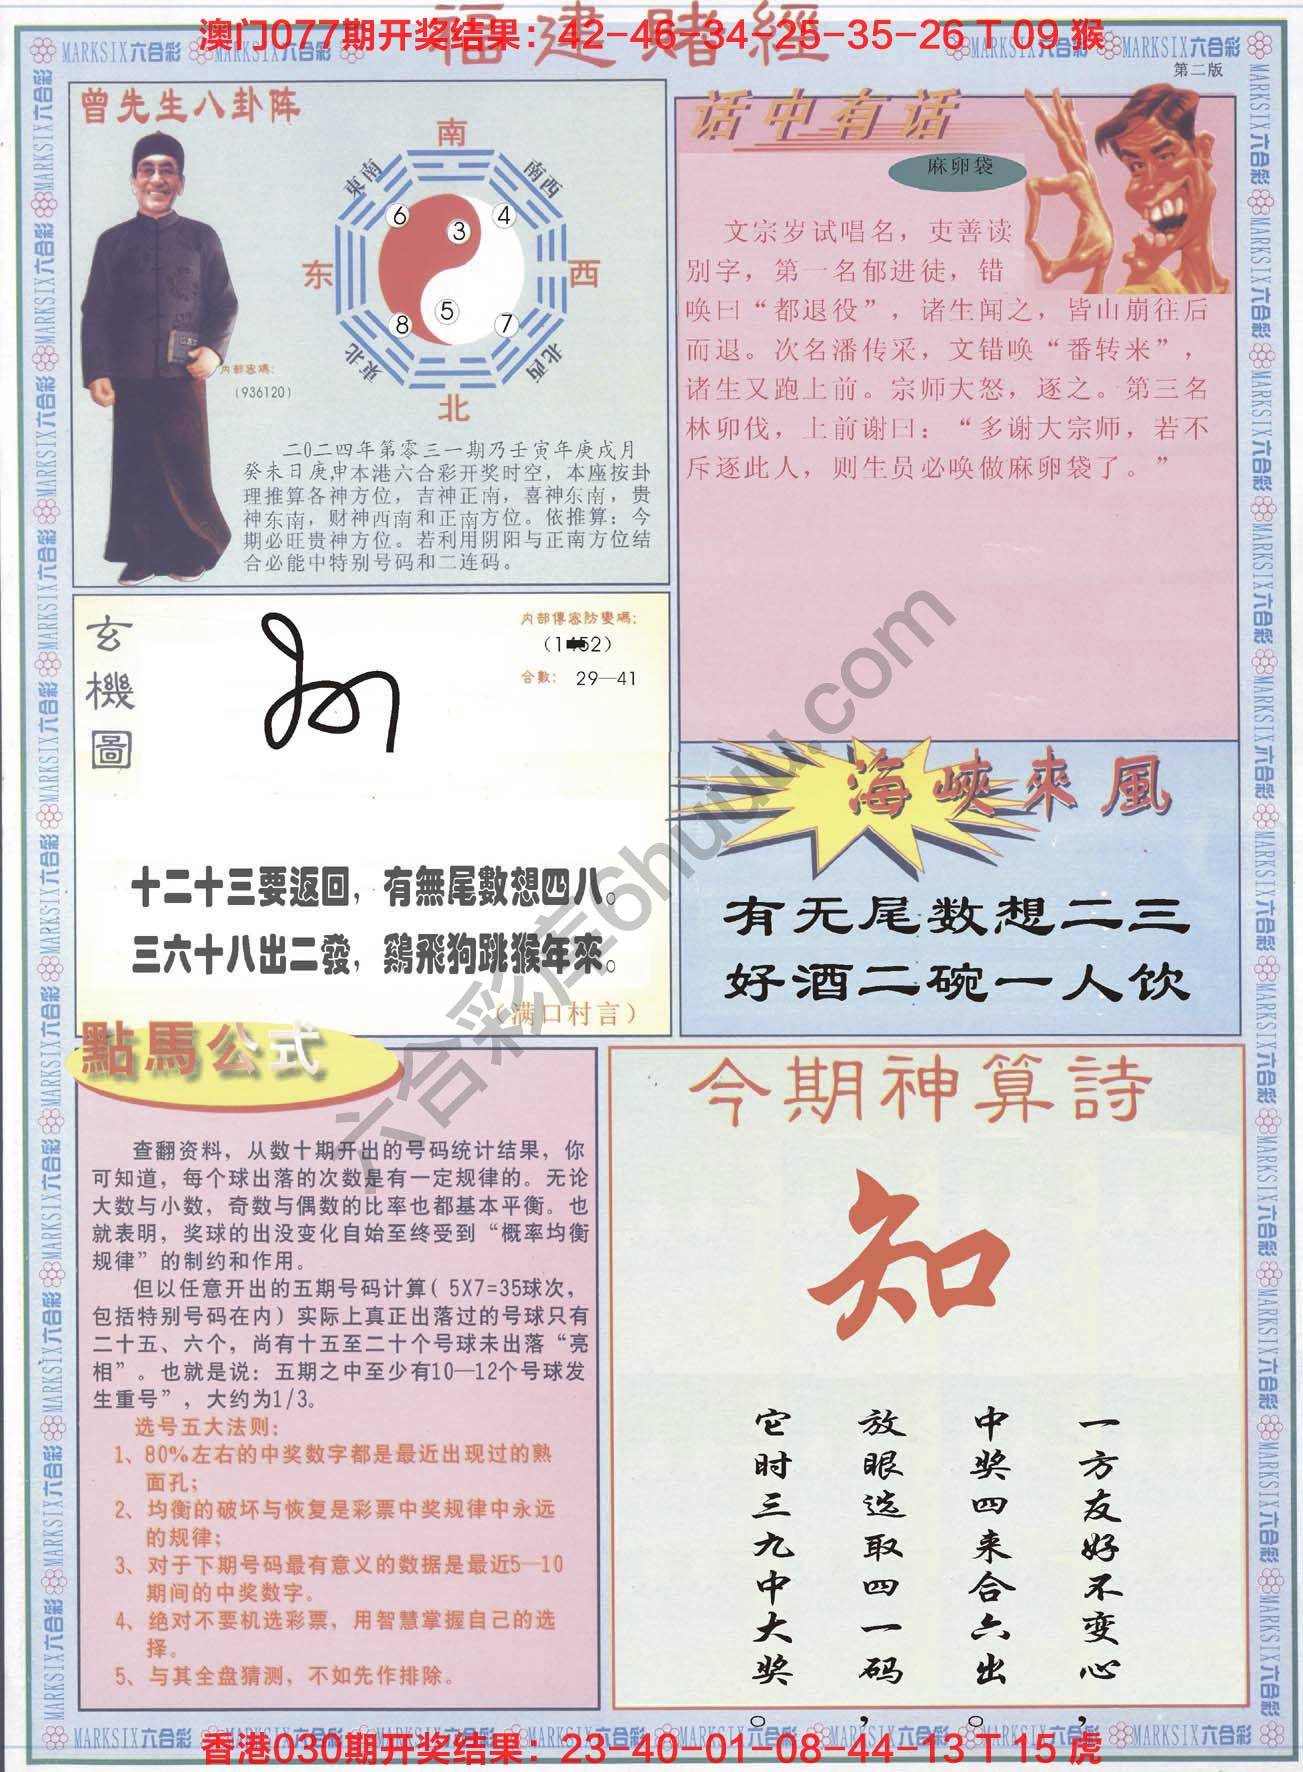 福建賭經
澳门077期开奖结果：42-46-34-25-35-26 T 09 猴
MARKSIX六合彩
第二版
曾先生八卦阵
南
東南
南西
6
3
4
东
西
8
5
7
東北
北西
北
内部密碼:
(936120)
二0二四年第零三一期乃壬寅年庚戌月
癸未日庚申本港六合彩开奖时空，本座按卦
理推算各神方位，吉神正南，喜神东南，贵
神东南，财神西南和正南方位。依推算：今
期必旺贵神方位。若利用阴阳与正南方位结
合必能中特别号码和二连码。
话中有话
麻卵袋
文宗岁试唱名，吏善读
别字，第一名郁进徒，错
唤曰“都退役”，诸生闻之，皆山崩往后
而退。次名潘传采，文错唤“番转来”，
诸生又跑上前。宗师大怒，逐之。第三名
林卯伐，上前谢曰：“多谢大宗师，若不
斥逐此人，则生员必唤做麻卵袋了。”
玄機圖
内部傳密防變碼:
合數: 29—41
十二十三要返回，有無尾數想四八。
三六十八出二發，鷄飛狗跳猴年來。
（满口村言）
海峽來風
有无尾数想二三
好酒二碗一人饮
點馬公式
查翻资料，从数十期开出的号码统计结果，你
可知道，每个球出落的次数是有一定规律的。无论
大数与小数，奇数与偶数的比率也都基本平衡。也
就表明，奖球的出没变化自始至终受到“概率均衡
规律”的制约和作用。
但以任意开出的五期号码计算( 5X7=35球次，
包括特别号码在内）实际上真正出落过的号球只有
二十五、六个，尚有十五至二十个号球未出落“亮
相”。也就是说：五期之中至少有10—12个号球发
生重号”，大约为1/3。
选号五大法则：
1、80%左右的中奖数字都是最近出现过的熟
面孔；
2、均衡的破坏与恢复是彩票中奖规律中永远
的规律；
3、对于下期号码最有意义的数据是最近5—10
期间的中奖数字。
4、绝对不要机选彩票，用智慧掌握自己的选
择。
5、与其全盘猜测，不如先作排除。
今期神算詩
知
一方友好不变心，
中奖四来合六出。
放眼选取四一码，
它时三九中大奖。
六合彩库6huuu.com
香港030期开奖结果：23-40-01-08-44-13 T 15 虎